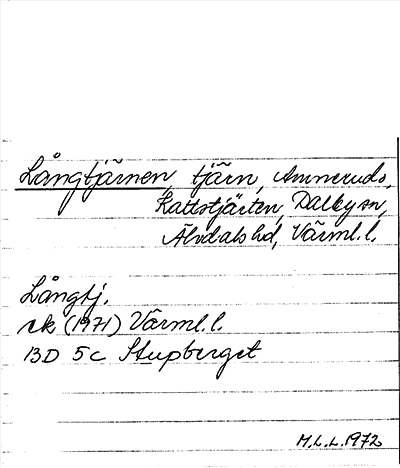 Långtjärnen, tjärn, Amneruds,
Kattstjärten, Dalby sn,
Älvdals hd, Värml. l.
Långtj.
rek (1971) Värml. l.
13D 5c Stupberget
M.L.L. 1972